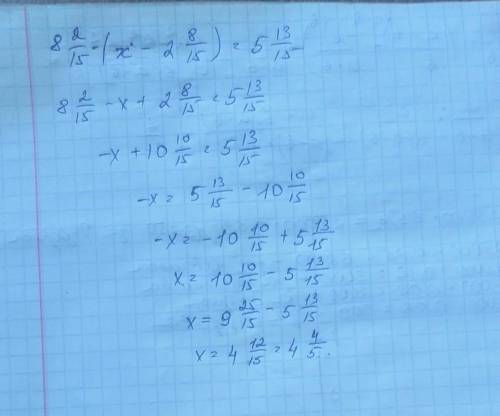 8 2/15 - (x - 2 8/15) = 5 13/15
8 2/15 - x + 2 8/15 = 5 13/15
-x + 10 10/15 = 5 13/15
-x = 5 13/15 - 10 10/15
-x = -10 10/15 + 5 13/15
x = 10 10/15 - 5 13/15
x = 9 25/15 - 5 13/15
x = 4 12/15 = 4 4/5.